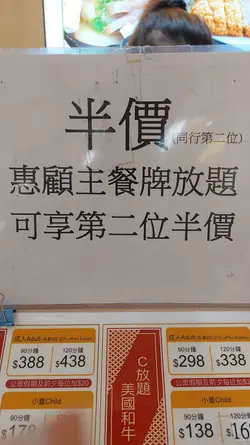 半價(同行第二位)
惠顧主餐牌放題
可享第二位半價
成人Adult
90分鐘 120分鐘
$388 $438
公眾假期及前夕每位加$20
小童Child
90分鐘 120分鐘
$178
C放題
美國和牛
成人Adult
90分鐘 120分鐘
$298 $338
公眾假期及前夕每位加$20
小童Child
90分鐘 120分鐘
$138